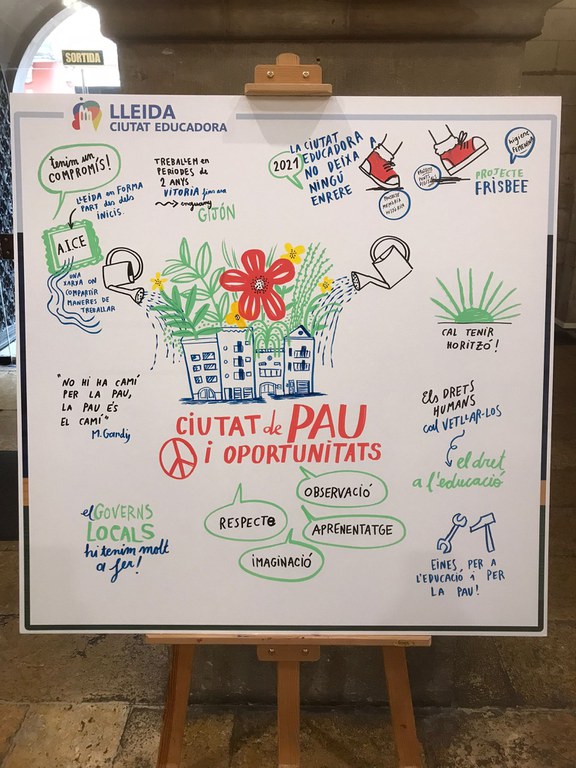 SORTIDA
LLEIDA
CIUTAT EDUCADORA
tenim un
COMPROMÍS!
LLEIDA EN FORMA
PART des dels
INICIS.
A.I.C.E
UNA
XARXA ON
COMPARTIR
MANERES DE
TREBALLAR
TREBALLEM en
PERÍODES de
2 ANYS.
VITORIA fins ara
enguany
GIJÓN
2021
LA CIUTAT
EDUCADORA
NO DEIXA A
NINGÚ
ENRERE
MEMÒRIA
HISTÒRIA
HIGIENE
FEMENINA
PROJECTE
FRISBEE
CAL TENIR
HORITZÓ!
"NO HI HA CAMÍ
PER LA PAU,
LA PAU ÉS
EL CAMÍ"
M. Gandji
CIUTAT de PAU
i OPORTUNITATS
ELS DRETS
HUMANS
cal VETLLAR-LOS
el dret
a l'educació
OBSERVACIÓ
RESPECTE
APRENENTATGE
IMAGINACIÓ
el GOVERNS
LOCALS
hi tenim molt
a fer!
EINES, PER A
L'EDUCACIÓ i PER
LA PAU!